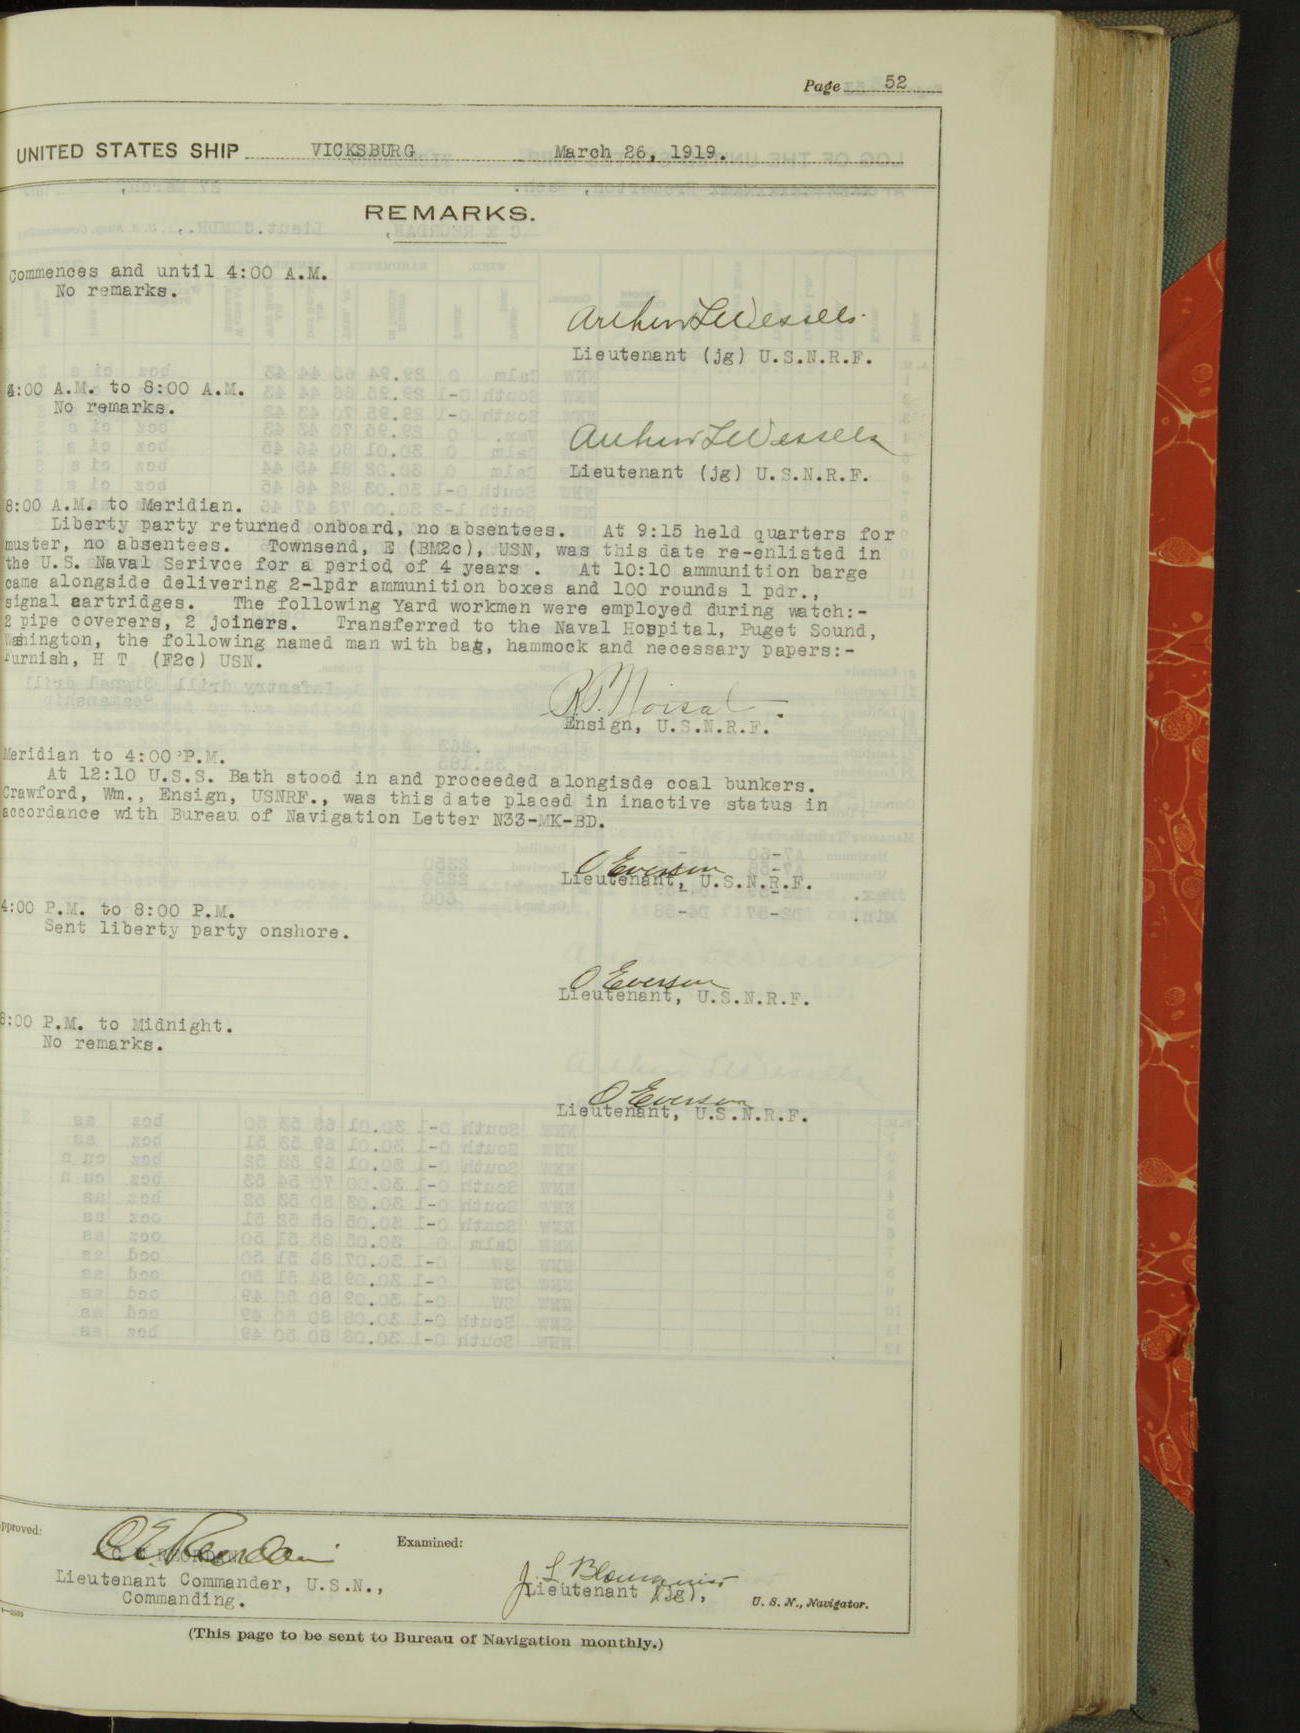 Page 52
UNITED STATES SHIP VICKSBURG March 26, 1919.
REMARKS.
Commences and until 4:00 A.M.
No remarks.
Arthur L Wessels
Lieutenant (jg) U.S.N.R.F.
4:00 A.M. to 8:00 A.M.
No remarks.
Arthur L Wessels
Lieutenant (jg) U.S.N.R.F.
8:00 A.M. to Meridian.
Liberty party returned onboard, no absentees. At 9:15 held quarters for
muster, no absentees. Townsend, E (BM2c), USN, was this date re-enlisted in
the U.S. Naval Serivce for a period of 4 years . At 10:10 ammunition barge
came alongside delivering 2-1pdr ammunition boxes and 100 rounds 1 pdr.,
signal cartridges. The following Yard workmen were employed during watch:-
2 pipe coverers, 2 joiners. Transferred to the Naval Hospital, Puget Sound,
Washington, the following named man with bag, hammock and necessary papers:-
Furnish, H T (F2c) USN.
Ensign, U.S.N.R.F.
Meridian to 4:00 P.M.
At 12:10 U.S.S. Bath stood in and proceeded alongisde coal bunkers.
Crawford, Wm., Ensign, USNRF., was this date placed in inactive status in
accordance with Bureau of Navigation Letter N33-MK-BD.
O Everson
Lieutenant, U.S.N.R.F.
4:00 P.M. to 8:00 P.M.
Sent liberty party onshore.
O Everson
Lieutenant, U.S.N.R.F.
8:00 P.M. to Midnight.
No remarks.
O Everson
Lieutenant, U.S.N.R.F.
Approved:
Examined:
C E Reordan
Lieutenant Commander, U.S.N.,
Commanding.
J. L. Blomquist
Lieutenant (jg), U. S. N., Navigator.
(This page to be sent to Bureau of Navigation monthly.)